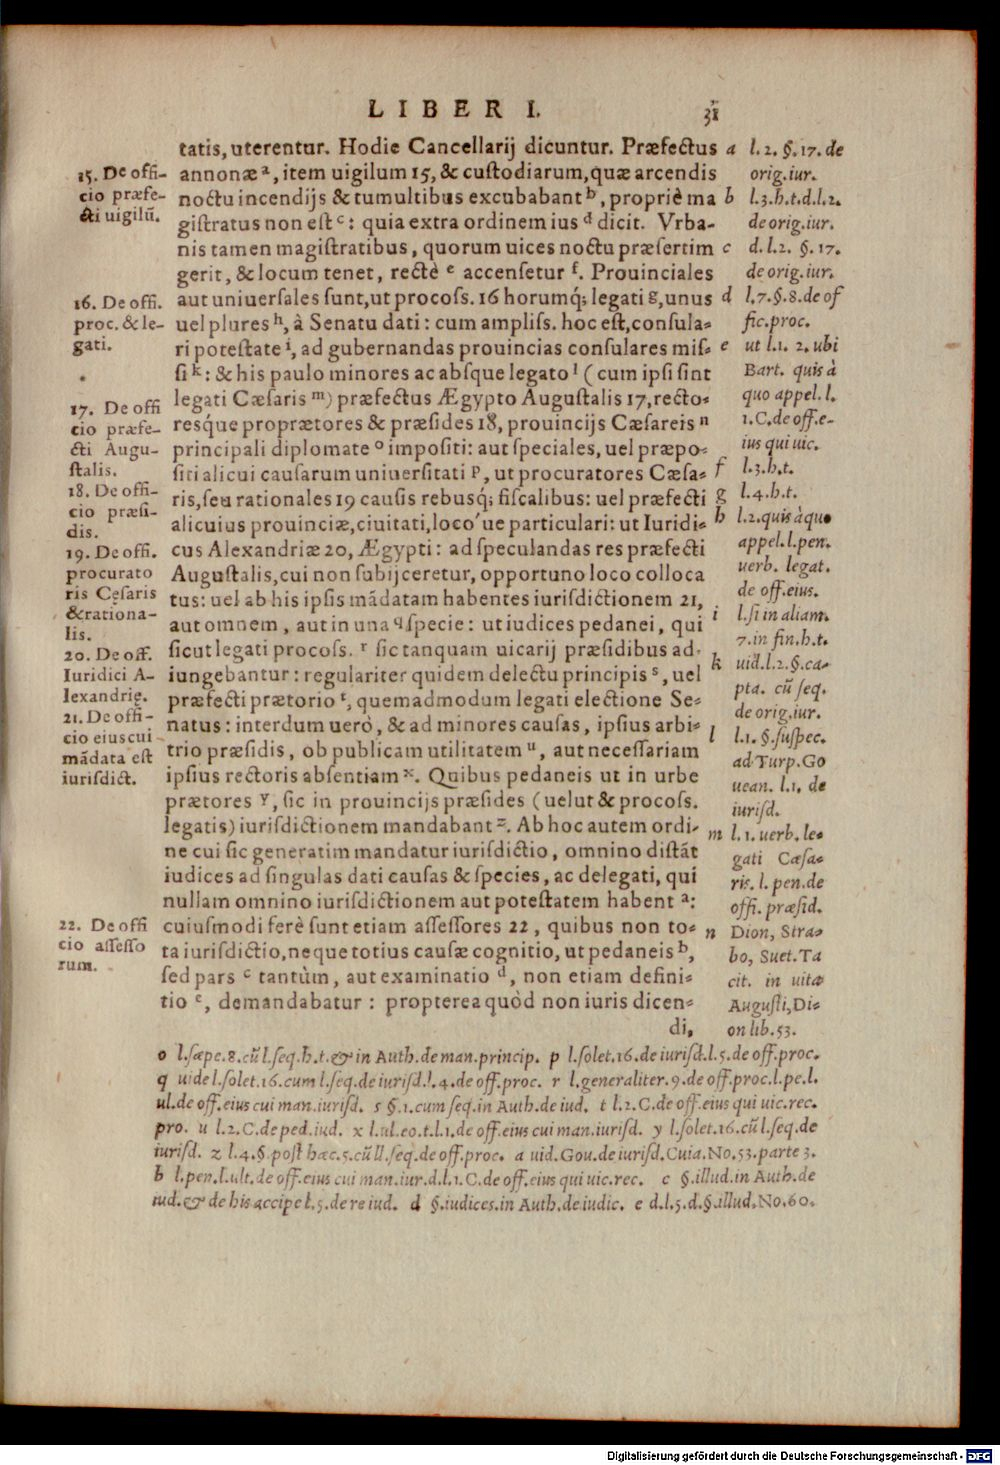 LIBER I. 31
tatis, uterentur. Hodie Cancellarij dicuntur. Præfectus
annonæ a, item uigilum 15, & custodiarum, quæ arcendis
noctu incendijs & tumultibus excubabant b, propriè ma
gistratus non est c: quia extra ordinem ius d dicit. Vrba-
nis tamen magistratibus, quorum uices noctu præsertim
gerit, & locum tenet, rectè e accensetur f. Prouinciales
aut uniuersales sunt, ut procoss. 16 horumq́; legati g, unus
uel plures h, à Senatu dati: cum ampliss. hoc est, consula-
ri potestate i, ad gubernandas prouincias consulares mis-
si k: & his paulo minores ac absque legato l (cum ipsi sint
legati Cæsaris m) præfectus Ægypto Augustalis 17, recto-
resq́ue proprætores & præsides 18, prouincijs Cæsareis n
principali diplomate o impositi: aut speciales, uel præpo-
siti alicui causarum uniuersitati p, ut procuratores Cæsa-
ris, seu rationales 19 causis rebusq́; fiscalibus: uel præfecti
alicuius prouinciæ, ciuitati, loco'ue particulari: ut Iuridi-
cus Alexandriæ 20, Ægypti: ad speculandas res præfecti
Augustalis, cui non subijceretur, opportuno loco colloca
tus: uel ab his ipsis mādatam habentes iurisdictionem 21,
aut omnem, aut in una q specie: ut iudices pedanei, qui
sicut legati procoss. r sic tanquam uicarij præsidibus ad-
iungebantur: regulariter quidem delectu principis s, uel
præfecti prætorio t, quemadmodum legati electione Se-
natus: interdum uerò, & ad minores causas, ipsius arbi-
trio præsidis, ob publicam utilitatem u, aut necessariam
ipsius rectoris absentiam x. Quibus pedaneis ut in urbe
prætores y, sic in prouincijs præsides (uelut & procoss.
legatis) iurisdictionem mandabant z. Ab hoc autem ordi-
ne cui sic generatim mandatur iurisdictio, omnino distāt
iudices ad singulas dati causas & species, ac delegati, qui
nullam omnino iurisdictionem aut potestatem habent a:
cuiusmodi ferè sunt etiam assessores 22, quibus non to-
ta iurisdictio, neque totius causæ cognitio, ut pedaneis b,
sed pars c tantùm, aut examinatio d, non etiam defini-
tio e, demandabatur: propterea quòd non iuris dicen-
di,
15. De offi-
cio præfe-
cti uigilū.
16. De offi.
proc. & le-
gati.
17. De offi
cio præfe-
cti Augu-
stalis.
18. De offi-
cio præsi-
dis.
19. De offi.
procurato
ris Cęsaris
& rationa-
lis.
20. De off.
Iuridici A-
lexandrię.
21. De offi-
cio eius cui
mādata est
iurisdict.
22. De offi
cio assesso
rum.
a l. 2. §. 17. de
orig. iur.
b l. 3. h. t. d. l. 2.
de orig. iur.
c d. l. 2. §. 17.
de orig. iur.
d l. 7. §. 8. de of
fic. proc.
e ut l. 1. 2. ubi
Bart. quis à
quo appel. l.
1. C. de off. e-
ius qui uic.
f l. 3. h. t.
g l. 4. h. t.
h l. 2. quis à quo
appel. l. pen.
uerb. legat.
de off. eius.
i l. si in aliam.
7. in fin. h. t.
k uid. l. 2. §. ca-
pta. cū seq.
de orig. iur.
l l. 1. §. suspec.
ad Turp. Go
uean. l. 1. de
iurisd.
m l. 1. uerb. le-
gati Cæsa-
ris. l. pen. de
offi. præsid.
n Dion, Stra-
bo, Suet. Ta
cit. in uita
Augusti, Di-
on lib. 53.
o l. sæpe. 8. cū l. seq. h. t. & in Auth. de man. princip. p l. solet. 16. de iurisd. l. 5. de off. proc.
q uide l. solet. 16. cum l. seq. de iurisd. l. 4. de off. proc. r l. generaliter. 9. de off. proc. l. pe. l.
ul. de off. eius cui man. iurisd. s §. 1. cum seq. in Auth. de iud. t l. 2. C. de off. eius qui uic. rec.
pro. u l. 2. C. de ped. iud. x l. ul. eo. t. l. 1. de off. eius cui man. iurisd. y l. solet. 16. cū l. seq. de
iurisd. z l. 4. §. post hæc. 5. cū ll. seq. de off. proc. a uid. Gou. de iurisd. Cuia. No. 53. parte 3.
b l. pen. l. ult. de off. eius cui man. iur. d. l. 1. C. de off. eius qui uic. rec. c §. illud. in Auth. de
iud. & de his accipe l. 5. de re iud. d §. iudices. in Auth. de iudic. e d. l. 5. d. §. illud. No. 60.
Digitalisierung gefördert durch die Deutsche Forschungsgemeinschaft - DFG